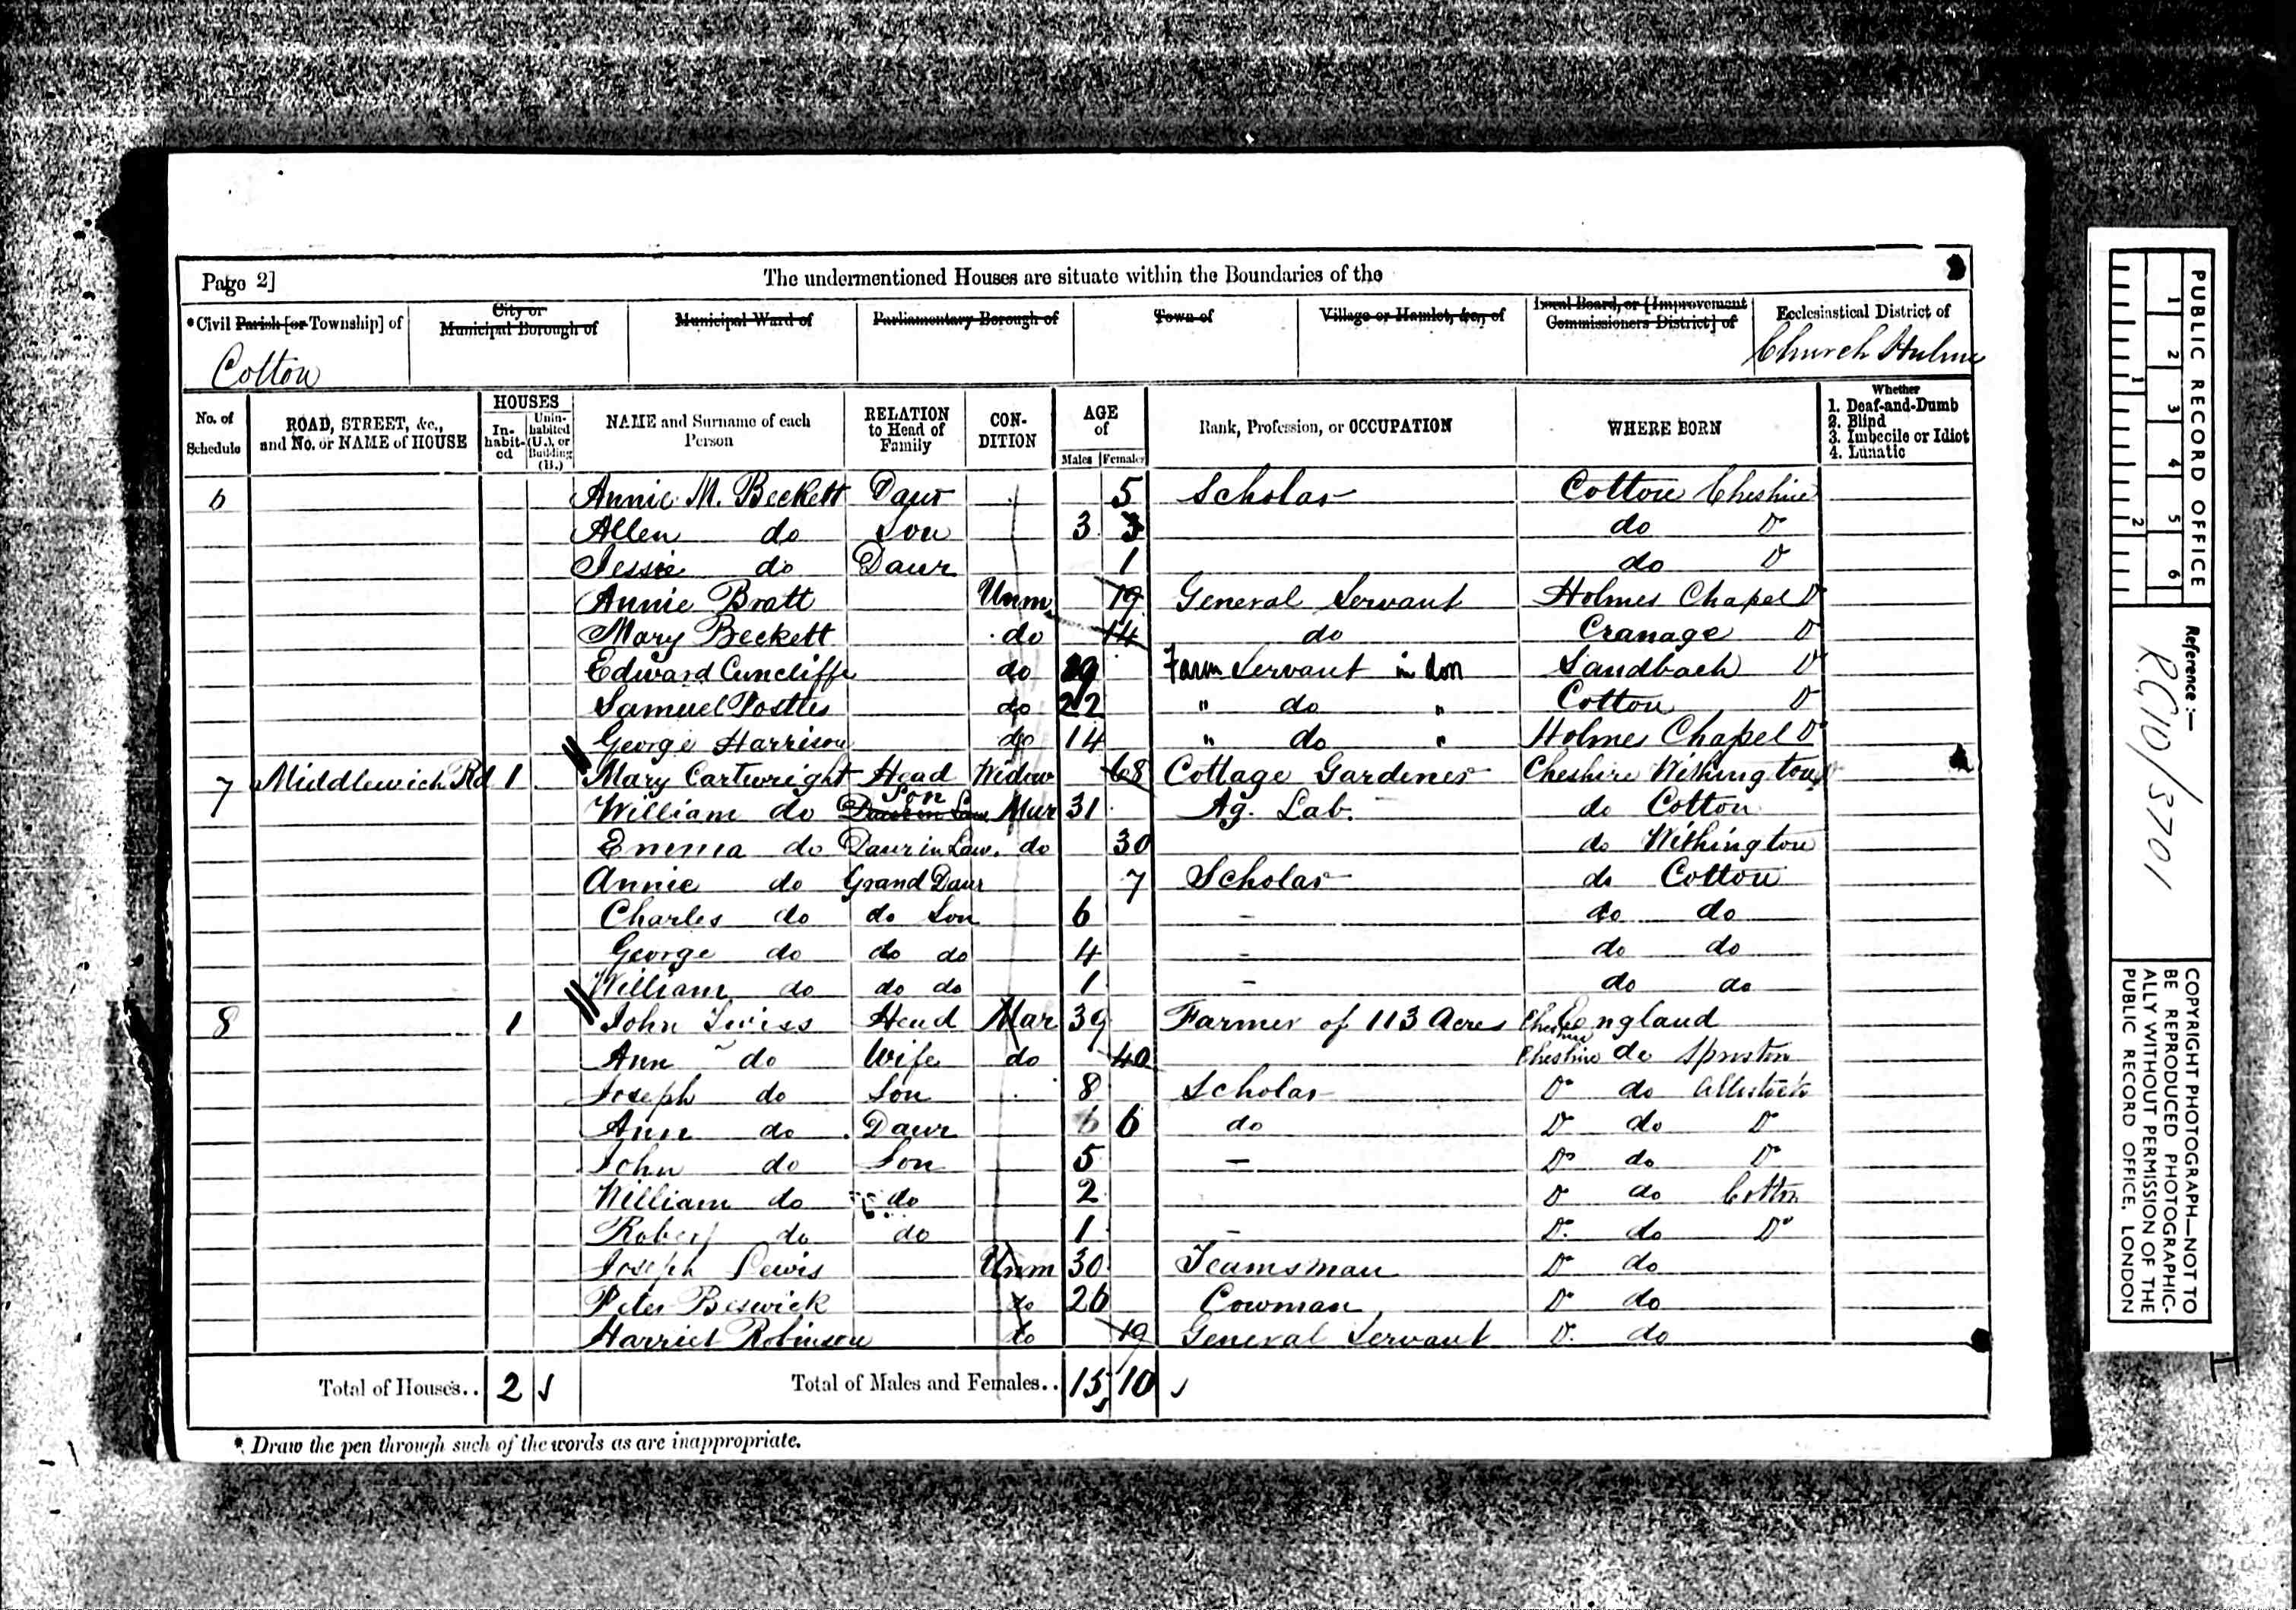 Page 2] The undermentioned Houses are situate within the Boundaries of the
*Civil Parish [or Township] of City or Municipal Borough of Municipal Ward of Parliamentary Borough of Town of Village or Hamlet, &c., of Local Board, or [Improvement Commissioners District] of Ecclesiastical District of
Cotton Church Hulme
No. of Schedule ROAD, STREET, &c., and No. or NAME of HOUSE HOUSES Inhabited Uninhabited (U.), or Building (B.) NAME and Surname of each Person RELATION to Head of Family CONDITION AGE of Males Females Rank, Profession, or OCCUPATION WHERE BORN Whether 1. Deaf-and-Dumb 2. Blind 3. Imbecile or Idiot 4. Lunatic
6 Annie M. Beckett Daur 5 Scholar Cotton Cheshire
Allen do Son 3 3 do Do
Jessie do Daur 1 do Do
Annie Bratt Unm 19 General Servant Holmes Chapel Do
Mary Beckett do 14 do Cranage Do
Edward Cuncliffe do 19 Farm Servant in don Sandbach Do
Samuel do 22 " do " Cotton Do
George Harrison do 14 " do " Holmes Chapel Do
7 Middlewich Rd 1 Mary Cartwright Head Widow 68 Cottage Gardener Cheshire Withington
William do Daur in Law Son Mar 31 Ag. Lab. do Cotton
Emma do Daur in Law. do 30 do Withington
Annie do Grand Daur 7 Scholar do Cotton
Charles do do Son 6 - do do
George do do do 4 - do do
William do do do 1 - do do
8 1 John Twiss Head Mar 39 Farmer of 113 Acres Cheshire England
Ann do Wife do 40 Cheshire do Sproston
Joseph do Son 8 Scholar Do do Allostock
Ann do Daur 6 6 do Do do Do
John do Son 5 - Do do Do
William do do 2 Do do Cotton
Robert do do 1 - Do do Do
Joseph Lewis Unm 30 Teamsman Do do
Peter Beswick do 26 Cowman Do do
Harriet Robinson do 19 General Servant Do do
Total of Houses.. 2 Total of Males and Females.. 15 10
*. Draw the pen through such of the words as are inappropriate.
PUBLIC RECORD OFFICE
1 2 3 4 5 6
1 2
Reference:—
RG10/3701
COPYRIGHT PHOTOGRAPH—NOT TO
BE REPRODUCED PHOTOGRAPHIC-
ALLY WITHOUT PERMISSION OF THE
PUBLIC RECORD OFFICE, LONDON